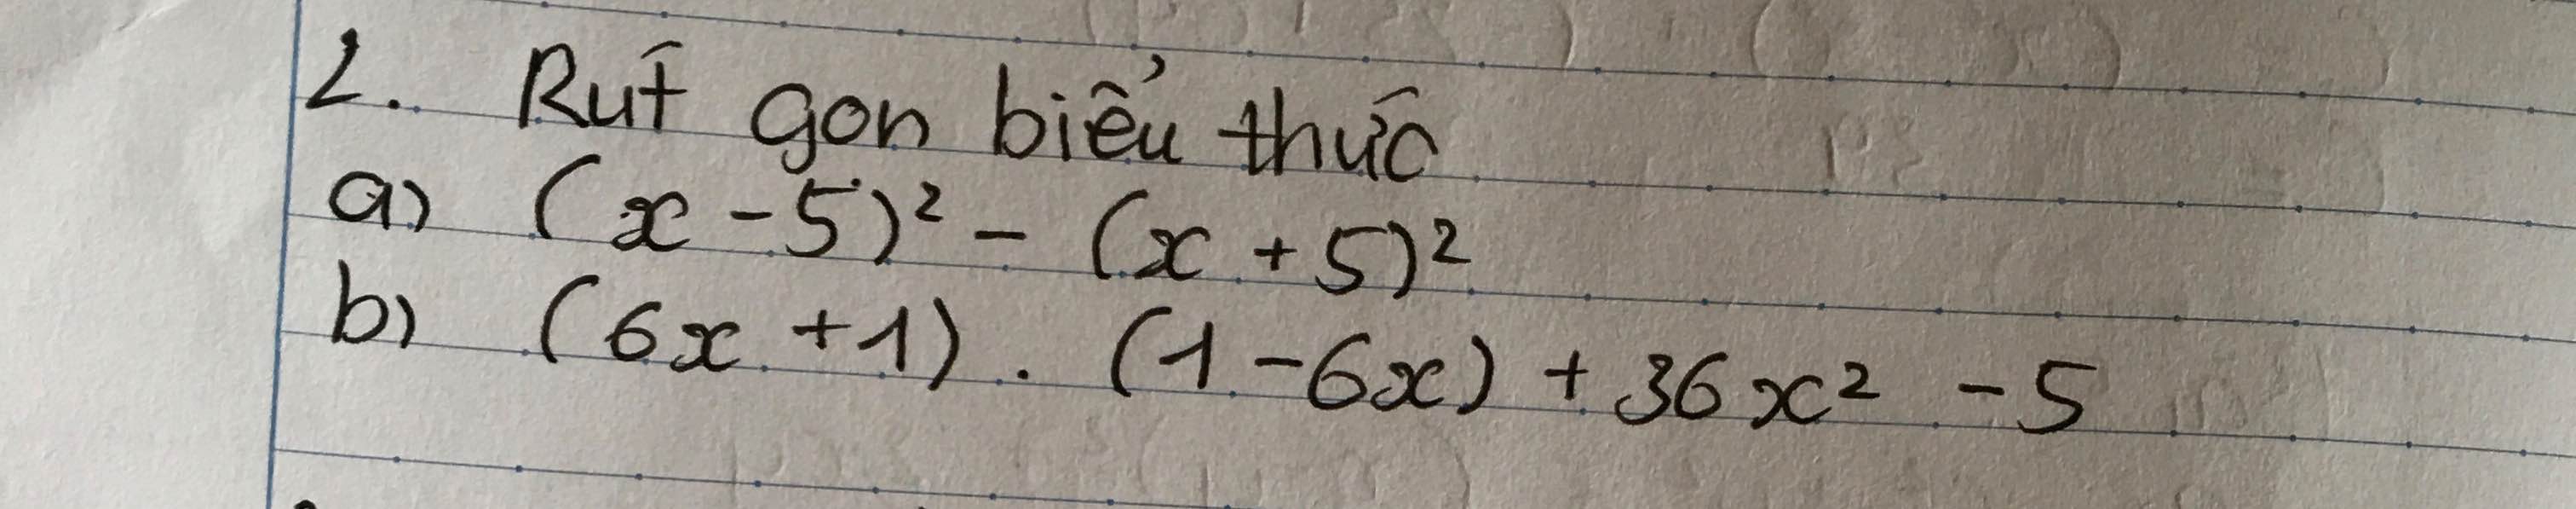 2. Rút gon biểu thức
a) (x - 5)² - (x + 5)²
b) (6x + 1) . (1 - 6x) + 36x² - 5